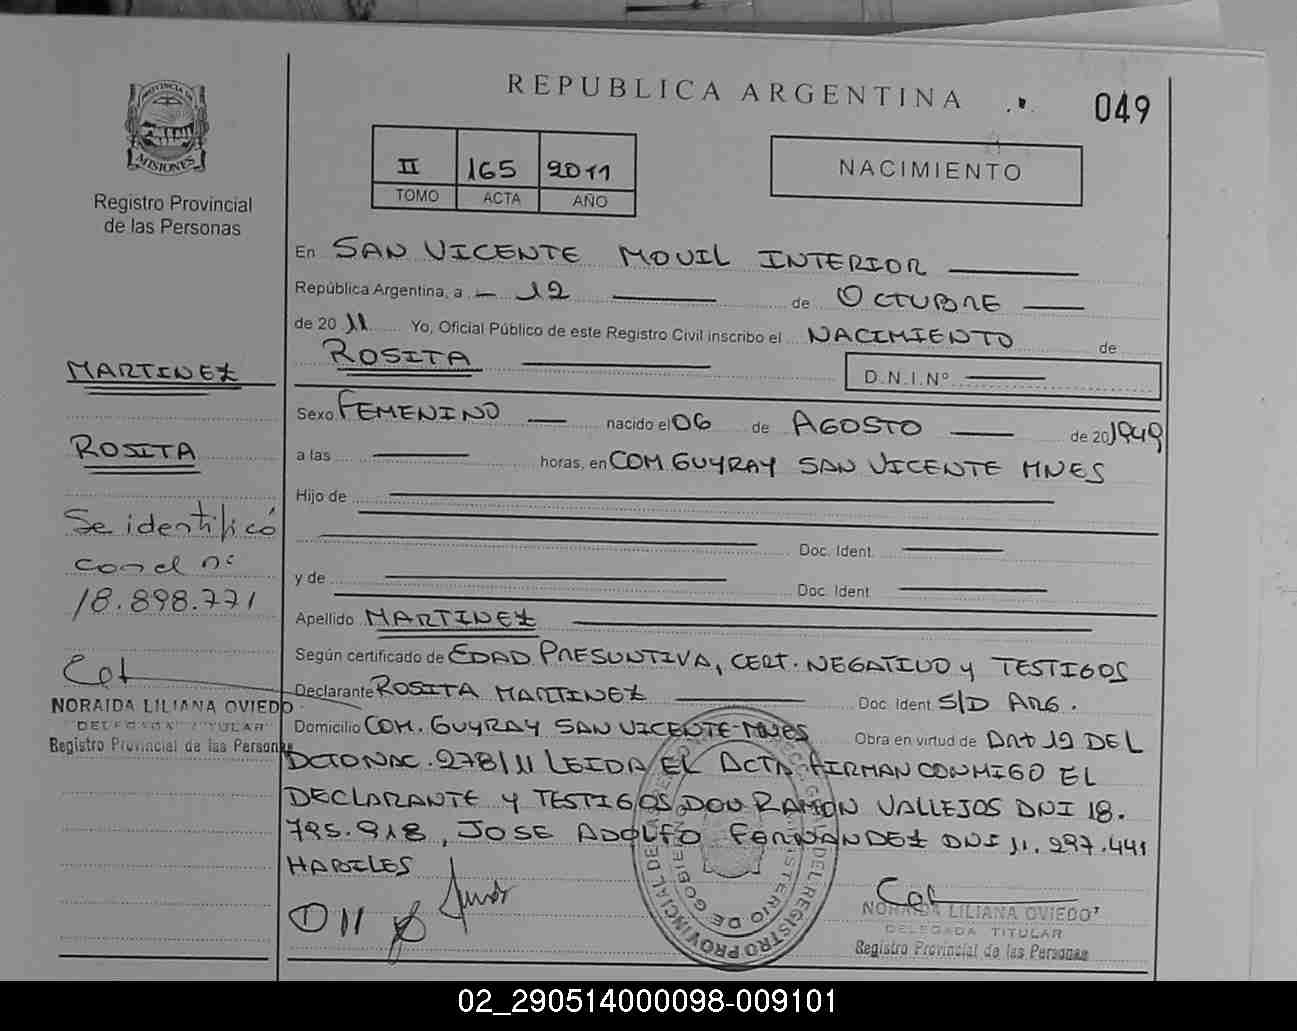 REPUBLICA ARGENTINA
049
PROVINCIA DE
MISIONES
Registro Provincial
de las Personas
II 165 2011
TOMO ACTA AÑO
NACIMIENTO
En SAN VICENTE MOVIL INTERIOR
República Argentina, a 12 de OCTUBRE
de 2011 Yo, Oficial Público de este Registro Civil inscribo el NACIMIENTO de
ROSITA
D.N.I.Nº
Sexo FEMENINO nacido el 06 de AGOSTO de 20 1949
a las horas, en COM. GUYRAY SAN VICENTE MNES
Hijo de
Doc. Ident.
y de
Doc. Ident.
Apellido MARTINEZ
Según certificado de EDAD PRESUNTIVA, CERT. NEGATIVO y TESTIGOS
Declarante ROSITA MARTINEZ Doc. Ident. S/D ARG.
Domicilio COM. GUYRAY SAN VICENTE-MNES Obra en virtud de Art 12 DEL
DCTO NAC. 278/11 LEIDA EL ACTA FIRMAN CONMIGO EL
DECLARANTE Y TESTIGOS DON RAMON VALLEJOS DNI 18.
795.918, JOSE ADOLFO FERNANDEZ DNI 11.297.441
HABILES
NORAIDA LILIANA OVIEDO
DELEGADA TITULAR
Registro Provincial de las Personas
MARTINEZ
ROSITA
Se identificó
con el nº
18.898.771
NORAIDA LILIANA OVIEDO
DELEGADA TITULAR
Registro Provincial de las Personas
02_290514000098-009101